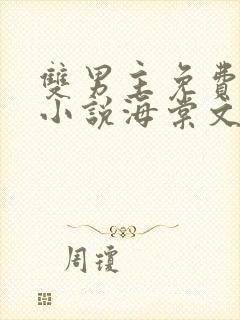 雙男主免費
小說海棠文
周瓊